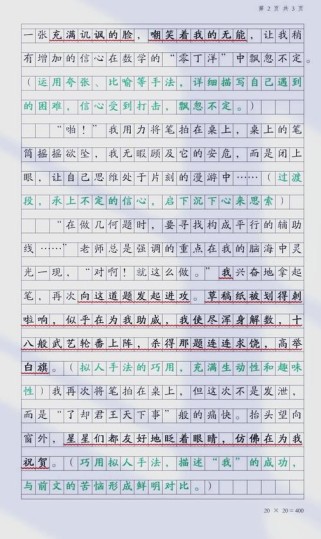 第 2 页 共 3 页
一张充满讥讽的脸，嘲笑着我的无能，让我稍
有增加的信心在数学的“零丁洋”中飘忽不定。
（运用夸张、比喻等手法，详细描写自己遇到
的困难，信心受到打击，飘忽不定。）
“啪！”我用力将笔拍在桌上，桌上的笔
筒摇摇欲坠，我无暇顾及它的安危，而是闭上
眼，让自己思维处于片刻的漫游中……（过渡
段，承上不定的信心，启下沉下心来思索）
“在做几何题时，要寻找构成平行的辅助
线……”老师总是强调的重点在我的脑海中灵
光一现，“对啊！就这么做。”我兴奋地拿起
笔，再次向这道题发起进攻。草稿纸被划得刺
啦响，似乎在为我助威，我使尽浑身解数，十
八般武艺轮番上阵，杀得那题连连求饶，高举
白旗。（拟人手法的巧用，充满生动性和趣味
性）我再次将笔拍在桌上，但这次不是发泄，
而是“了却君王天下事”般的痛快。抬头望向
窗外，星星们都友好地眨着眼睛，仿佛在为我
祝贺。（巧用拟人手法，描述“我”的成功，
与前文的苦恼形成鲜明对比。）
20 × 20 = 400